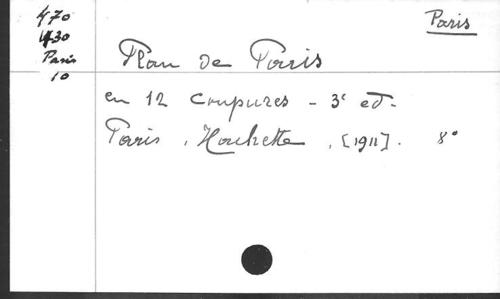 470
430
Paris
10
Paris
Plan de Paris
en 12 coupures - 3e ed.
Paris, Hachette, [1911]. 8°